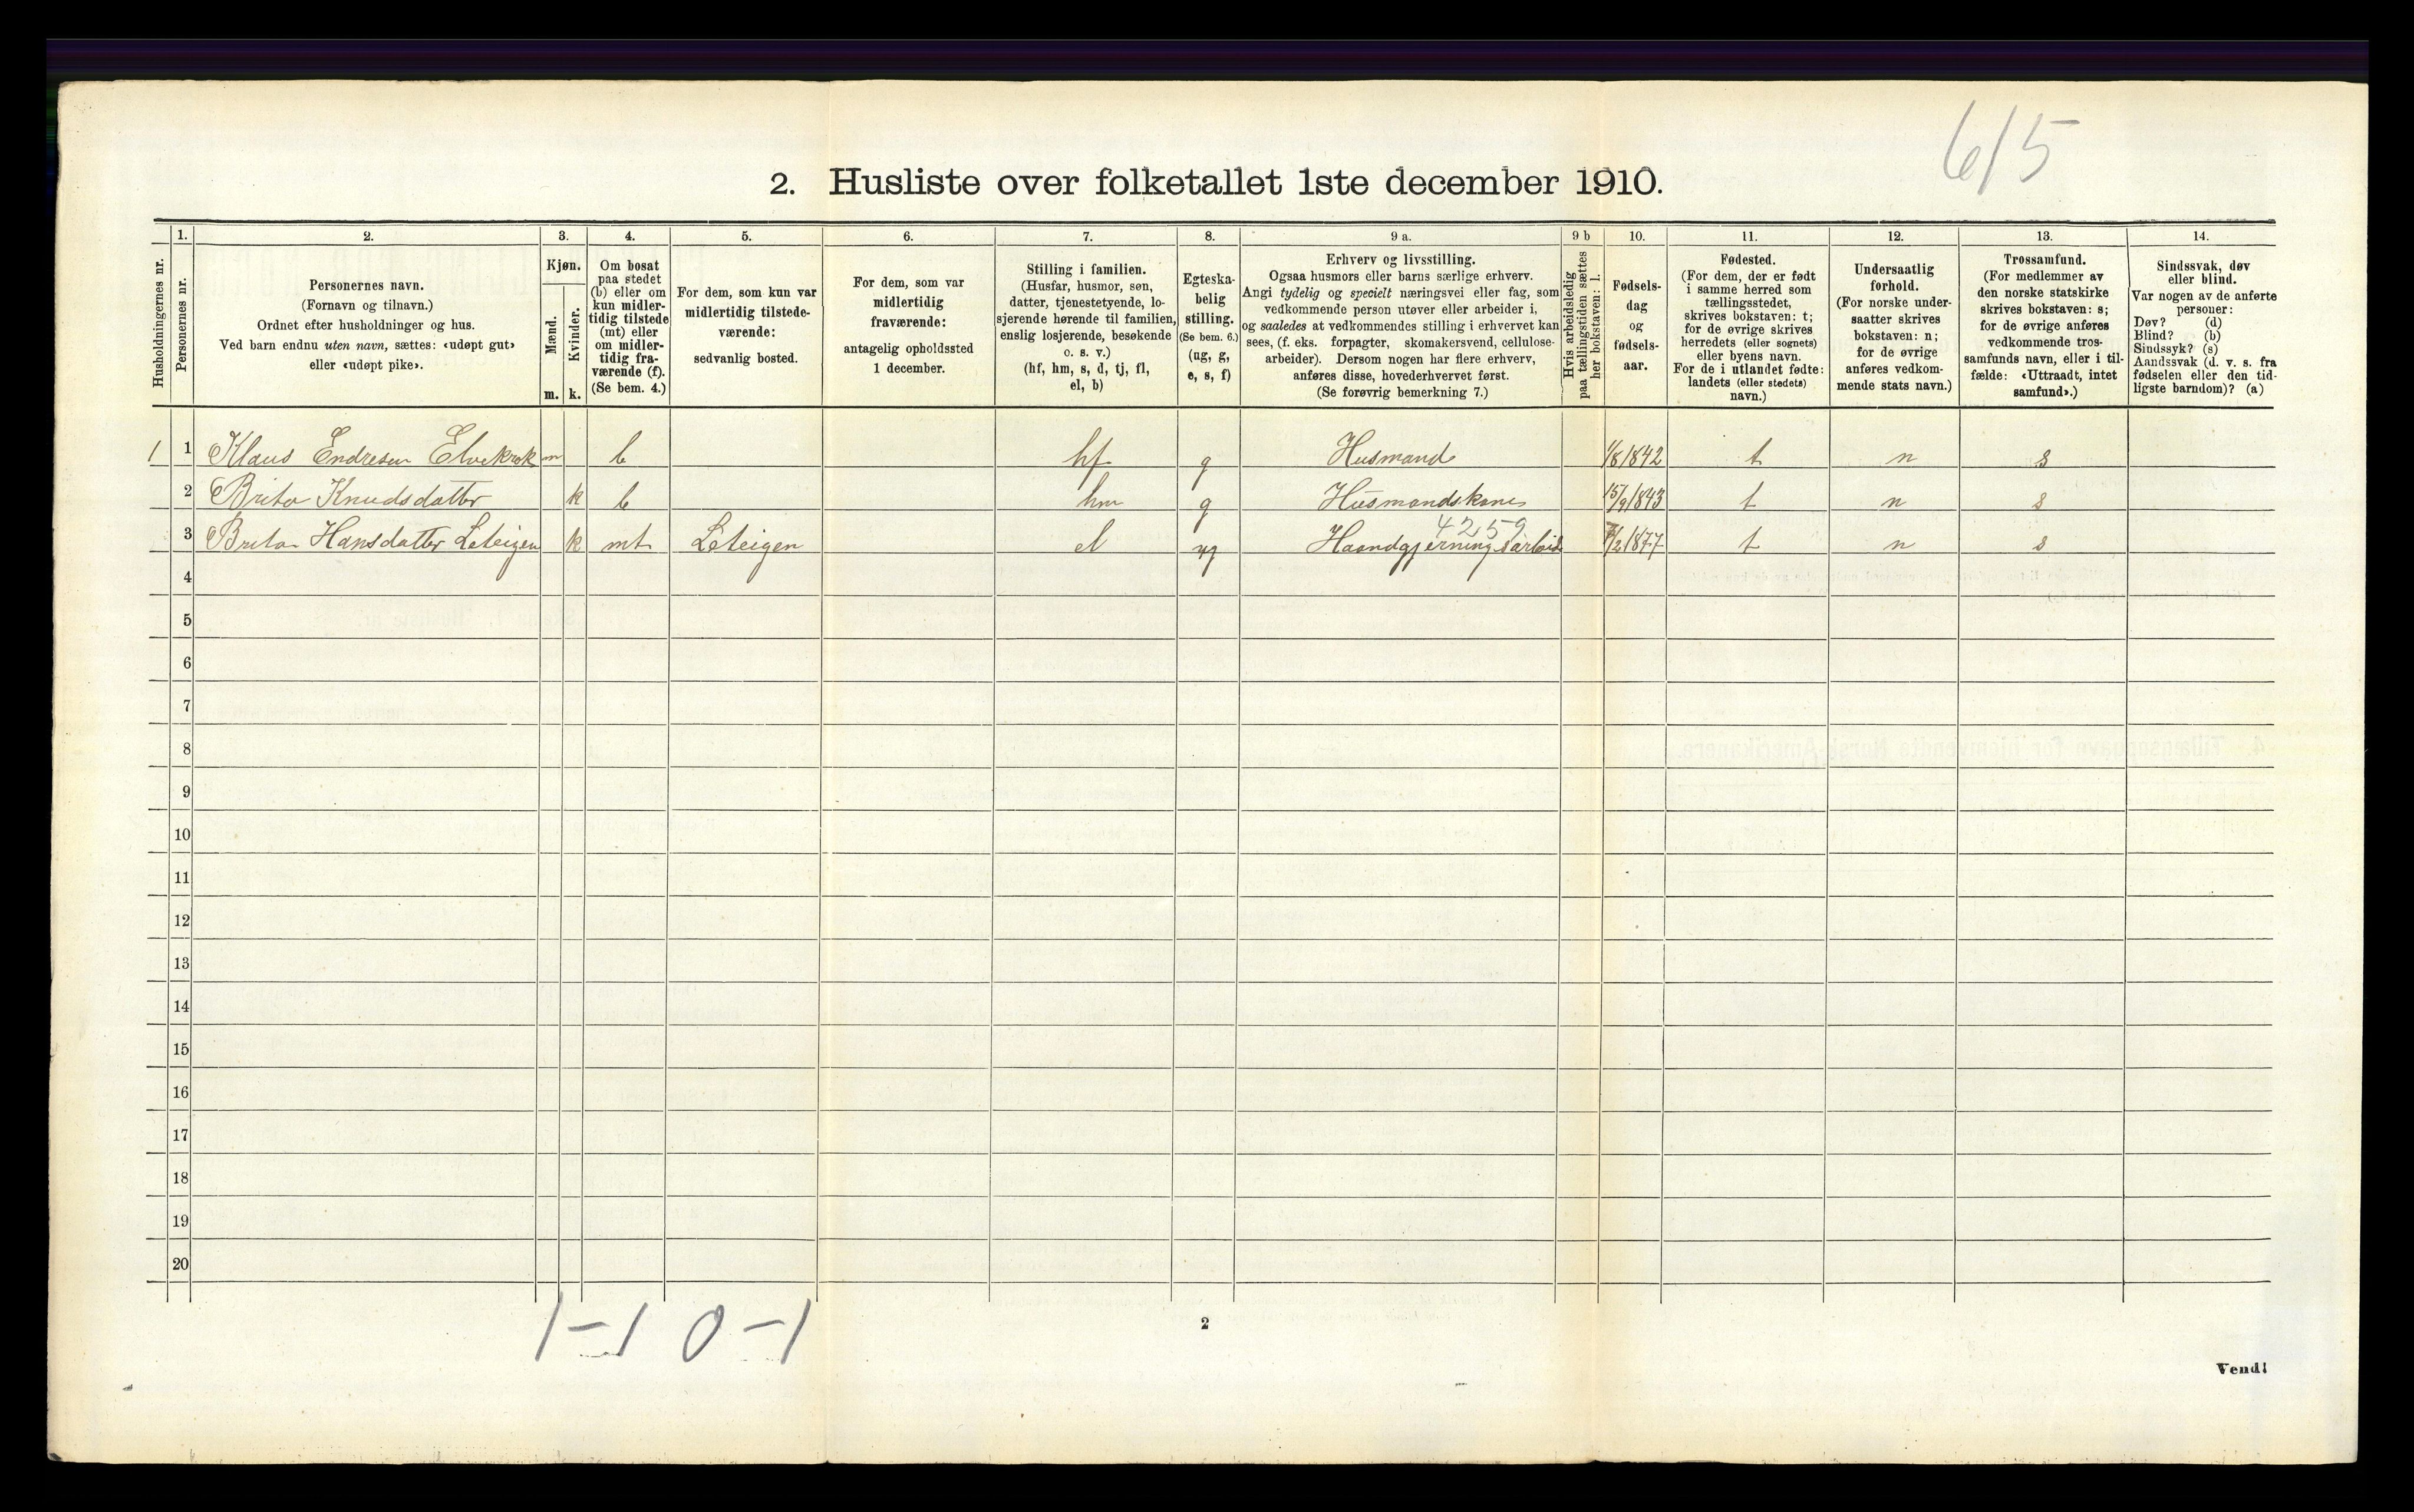 615
2. Husliste over folketallet 1ste december 1910.
Husholdningernes nr.
1.
Personernes nr.
2.
Personernes navn.
(Fornavn og tilnavn.)
Ordnet efter husholdninger og hus.
Ved barn endnu uten navn, sættes: «udøpt gut»
eller «udøpt pike».
3.
Kjøn.
Mænd.
Kvinder.
m. k.
4.
Om bosat
paa stedet
(b) eller om
kun midler-
tidig tilstede
(mt) eller
om midler-
tidig fra-
værende (f).
(Se bem. 4.)
5.
For dem, som kun var
midlertidig tilstede-
værende:
sedvanlig bosted.
6.
For dem, som var
midlertidig
fraværende:
antagelig opholdssted
1 december.
7.
Stilling i familien.
(Husfar, husmor, søn,
datter, tjenestetyende, lo-
sjerende hørende til familien,
enslig losjerende, besøkende
o. s. v.)
(hf, hm, s, d, tj, fl,
el, b)
8.
Egteska-
belig
stilling.
(Se bem. 6.)
(ug, g,
e, s, f)
9 a.
Erhverv og livsstilling.
Ogsaa husmors eller barns særlige erhverv.
Angi tydelig og specielt næringsvei eller fag, som
vedkommende person utøver eller arbeider i,
og saaledes at vedkommendes stilling i erhvervet kan
sees, (f. eks. forpagter, skomakersvend, cellulose-
arbeider). Dersom nogen har flere erhverv,
anføres disse, hovederhvervet først.
(Se forøvrig bemerkning 7.)
9 b
Hvis arbeidsledig
paa tællingstiden sættes
her bokstaven: l.
10.
Fødsels-
dag
og
fødsels-
aar.
11.
Fødested.
(For dem, der er født
i samme herred som
tællingsstedet,
skrives bokstaven: t;
for de øvrige skrives
herredets (eller sognets)
eller byens navn.
For de i utlandet fødte:
landets (eller stedets)
navn.)
12.
Undersaatlig
forhold.
(For norske under-
saatter skrives
bokstaven: n;
for de øvrige
anføres vedkom-
mende stats navn.)
13.
Trossamfund.
(For medlemmer av
den norske statskirke
skrives bokstaven: s;
for de øvrige anføres
vedkommende tros-
samfunds navn, eller i til-
fælde: «Uttraadt, intet
samfund».)
14.
Sindssvak, døv
eller blind.
Var nogen av de anførte
personer:
Døv? (d)
Blind? (b)
Sindssyk? (s)
Aandssvak (d. v. s. fra
fødselen eller den tid-
ligste barndom)? (a)
1 1 Klaus Endresen Elvekrok m b hf g Husmand 1/8 1842 t n s
2 Brita Knudsdatter k b hm g Husmandskone 15/9 1843 t n s
4259
3 Brita Hansdatter Leteigen k mt Leteigen el ug Haandgjerningsarbeide 7/2 1877 t n s
4
5
6
7
8
9
10
11
12
13
14
15
16
17
18
19
20
1-1 0-1
2
Vend!